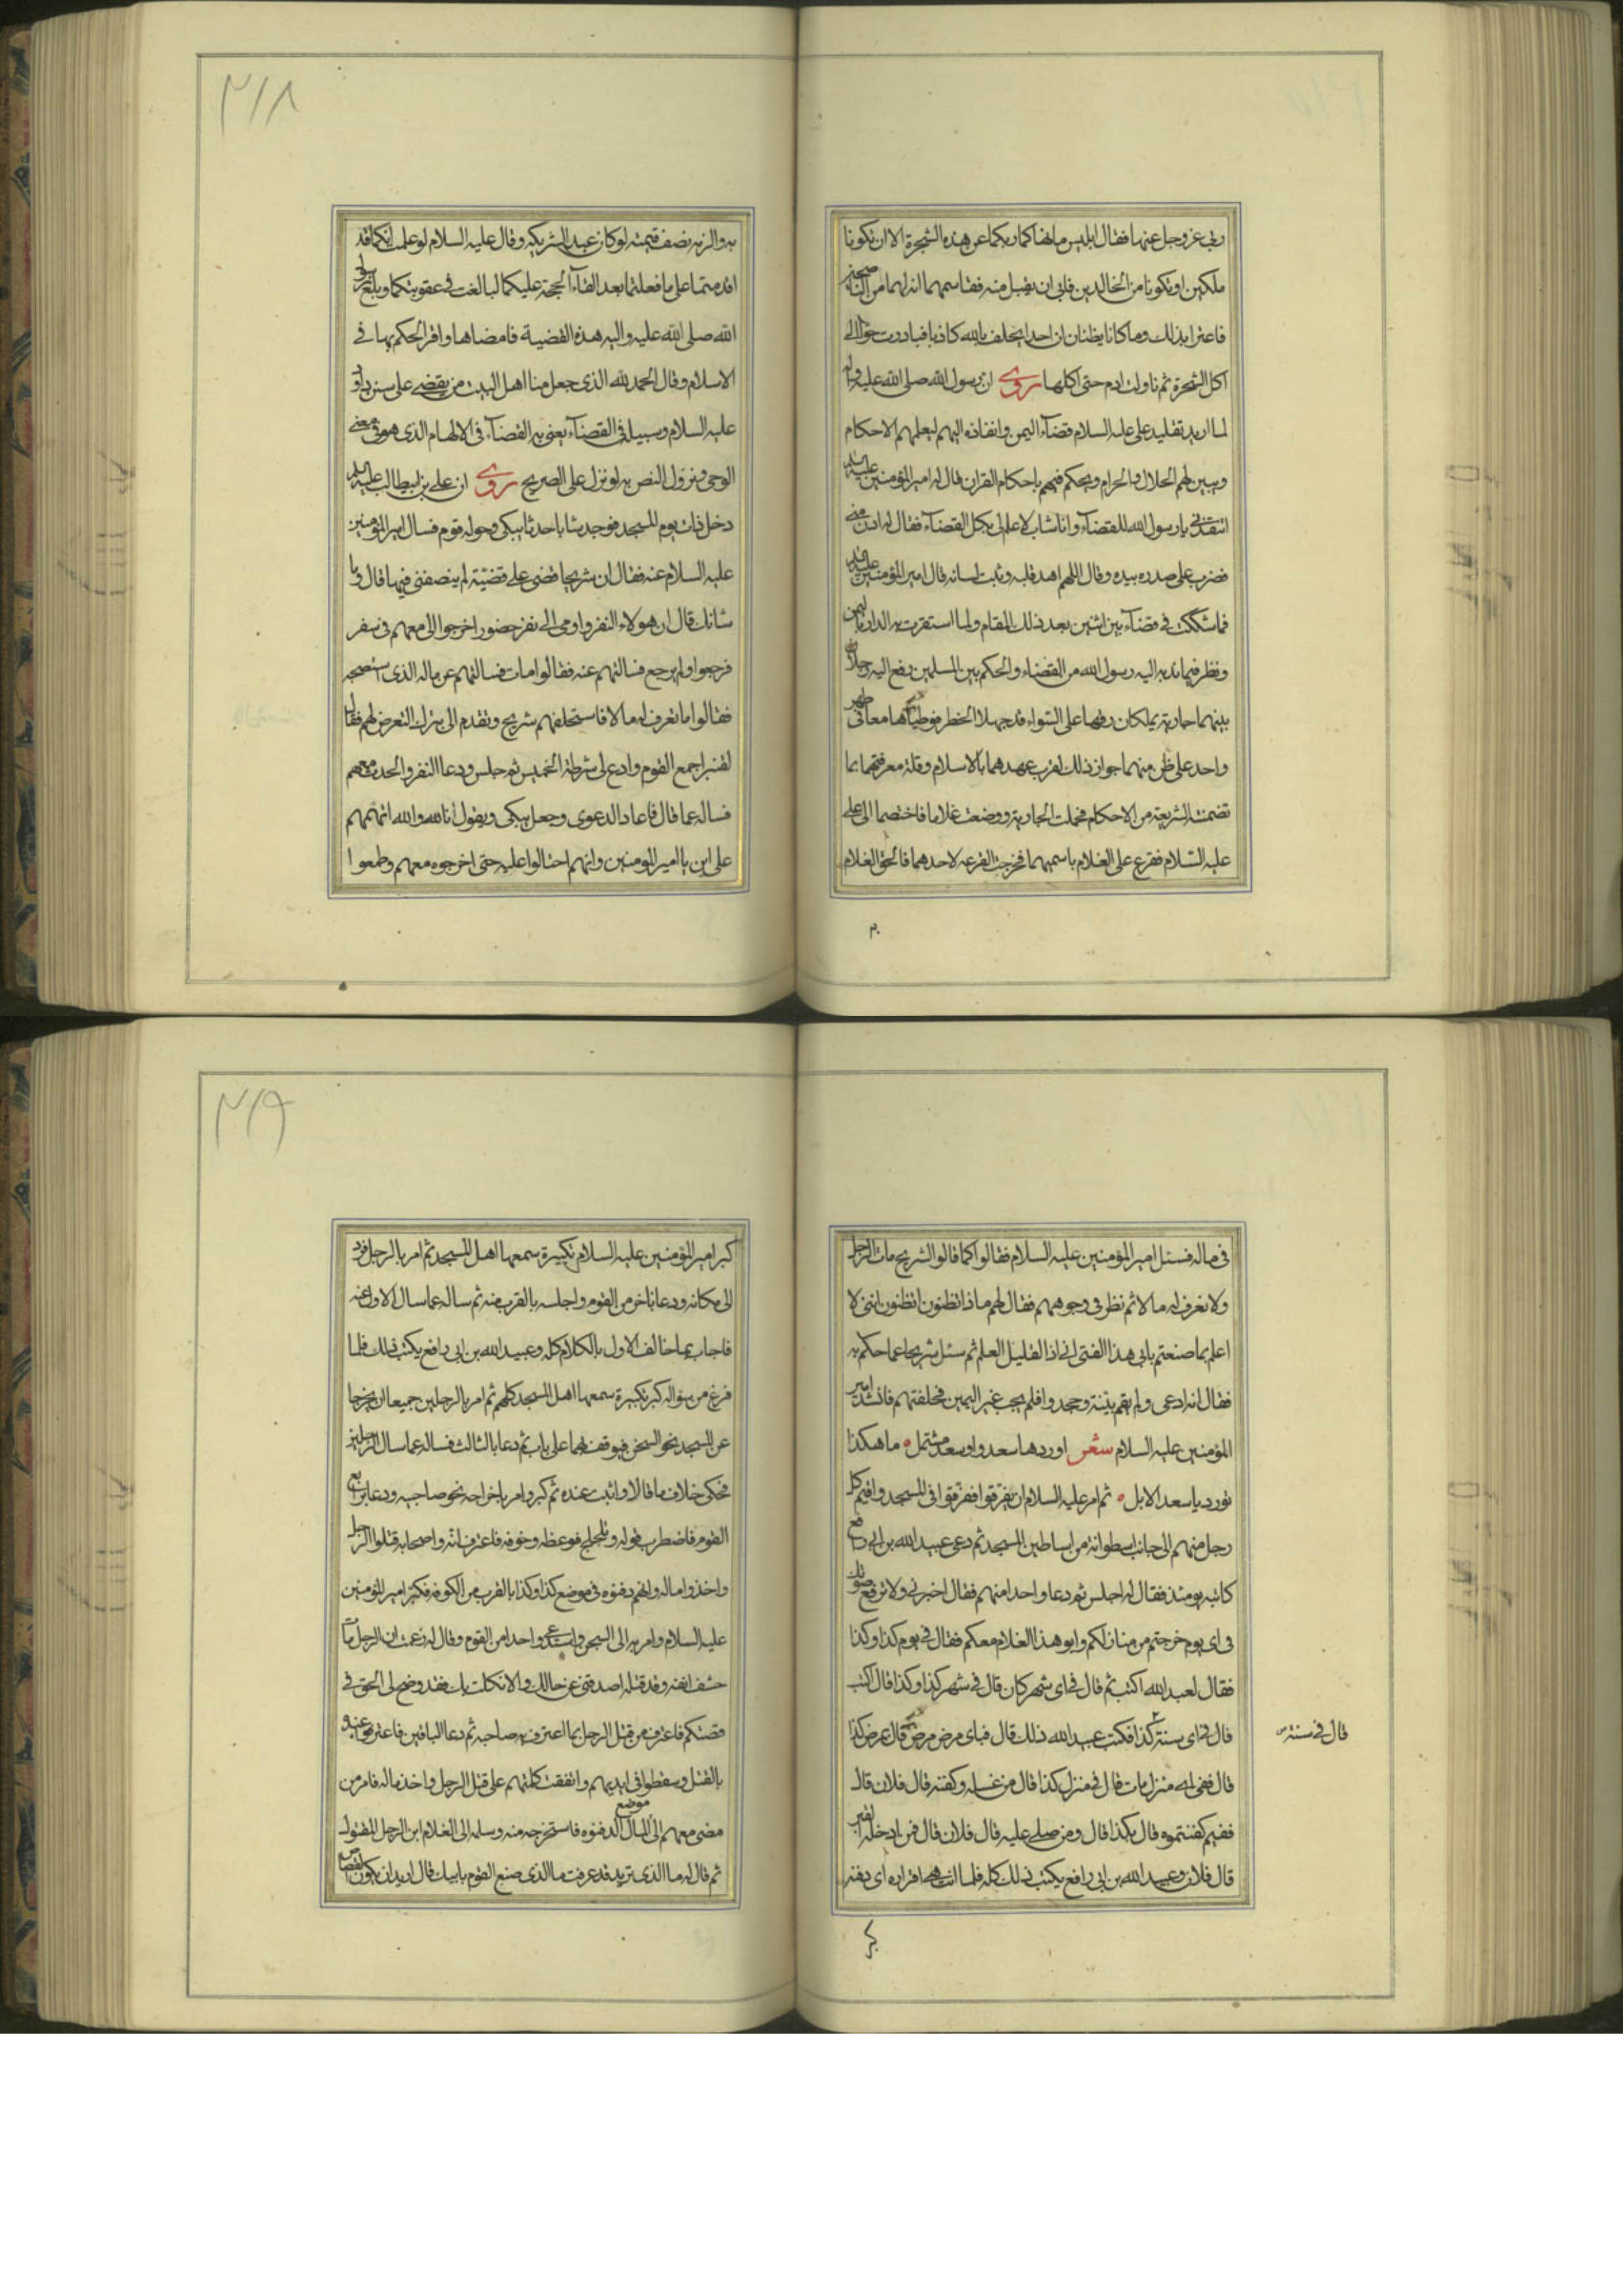 ربی عز وجل عنها فقال ابلیس ما نهاکما ربکما عن هذه الشجرة الا ان تکونا
ملکین او تکونا من الخالدین فابی ان یقبل منه فقاسمهما انه لهما من الناصحین
فاغترا بذلک وما کانا یظنان ان احدا یحلف بالله کاذبا فبادرت حوا الی
اکل الشجرة ثم ناولت ادم حتی اکلها روی ان رسول الله صلی الله علیه واله
لما ارید تقلید علی علیه السلام قضآء الیمن وانفاذه الیهم لیعلمهم الاحکام
ویبین لهم الحلال والحرام ویحکم فیهم باحکام القران قال له امیر المؤمنین علیه السلام
یا رسول الله للقضآء وانا شاب لا علم لی بکل القضآء فقال له ادن منی
فضرب علی صدره بیده وقال اللهم اهد قلبه وثبت لسانه قال امیر المؤمنین علیه السلام
فما شککت فی قضآء بین اثنین بعد ذلک المقام ولما استقرت به الدار بالیمن
ونظر فیما ندبه الیه رسول الله من القضاء والحکم بین المسلمین رفع الیه رجلان
بینهما جاریة یملکان رقها علی السواء قد جهلا الخطر فوطیاها معا فی طهر
واحد علی ظن منهما جواز ذلک لقرب عهدهما بالاسلام وقلة معرفتهما بما
تضمنته الشریعة من الاحکام فحملت الجاریة ووضعت غلاما فاختصما الی علی
علیه السلام فقرع علی الغلام باسمهما فخرجت القرعه لاحدهما فالحق الغلام
۲۱۸
به والزمه نصف قیمته لو کان عبد الشریکه وقال علیه السلام لو علمت انکما قد
اقدمتما علی ما فعلتما بعد القآء الحجة علیکما لبالغت فی عقوبتکما وبلغ رسول
الله صلی الله علیه واله هذه القضیة فامضاها واقر الحکم بها فی
الاسلام وقال الحمد لله الذی جعل منا اهل البیت من یقضی علی سنن داود
علیه السلام وسبیله فی القضآء یعنی به القضآء فی الالهام الذی هو فی معنی
الوحی ونزول النص به لو نزل علی الصریح روی ان علی بن ابیطالب علیه السلم
دخل ذات یوم المسجد فوجد شابا حدثا یبکی وحوله قوم فسال امیر المؤمنین
علیه السلام عنه فقال ان شریحا قضی علی قضیّة لم ینصفنی فیها قال وما
شانک قال ان هولاء النفر واومی الی نفر حضور اخرجوا ابی معهم فی سفر
فرجعوا ولم یرجع فسالتهم عنه فقالوا مات فسالتهم عن ماله الذی استصحبه
فقالوا ما نعرف له مالا فاستحلفهم شریح وتقدم الی بترک التعرض لهم فقال
لقنبر اجمع القوم وادع لی شرطة الخمیس ثم جلس ودعا النفر والحدث معهم
فساله عما قال فاعاد الدعوی وجعل یبکی ویقول انا لله والله اتهمهم
علی ابی یا امیر المومنین وانهم احتالوا علیه حتی اخرجوه معهم وطمعوا
فی ماله فسئل امیر المؤمنین علیه السلام فقالوا کما قالوا لشریح مات الرجل
ولا نعرف له مالا ثم نظر فی وجوههم فقال لهم ماذا تظنون اتظنون اننی لا
اعلم بما صنعتم بابی هذا الفتی انی اذا لقلیل العلم ثم سئل شریحا عما حکم به
فقال انه ادعی ولم یقم بیّنة وجحدوا فلم یجب غیر الیمین فحلفتهم فانشد امیر
المؤمنین علیه السلام شعر اوردها سعد واوسعد مشتمل ه ما هکذا
تورد یا سعد الابل ه ثم امر علیه السلام ان یفرقوا ففرقوا فی المسجد واقیم کل
رجل منهم الی جانب اسطوانة من اساطین المسجد ثم دعی عبید الله بن ابی رافع
کاتبه یومئذ فقال له اجلس ثم دعا واحدا منهم فقال اخبرنی ولا ترفع صوتک
فی ای یوم خرجتم من منازلکم وابو هذا الغلام معکم فقال فی یوم کذا وکذا
فقال لعبید الله اکتب ثم قال فی ای شهر کان قال فی شهر کذا وکذا قال اکتب
قال فی ای سنة کذا فکتب عبید الله ذلک قال فبای مرض مرض قال بمرض کذا
قال فی سنة
قال ففی ای منزل مات قال فی منزل کذا قال من غسله وکفنه قال فلان قال
ففیم کفنتموه قال بکذا قال ومن صلی علیه قال فلان قال فمن ادخله القبر
قال فلان وعبید الله بن ابی رافع یکتب ذلک کله فلما انتهی اقراره ای دفنه
کبر
۲۱۹
کبر امیر المؤمنین علیه السلام تکبیرة سمعها اهل المسجد ثم امر بالرجل فرد
الی مکانه ودعا باخر من القوم واجلسه بالقرب منه ثم ساله عما سال الاول عنه
فاجاب بما خالف الاول بالکلام کله وعبید الله بن ابی رافع یکتب ذلک فلما
فرغ من سؤاله کبر تکبیرة سمعها اهل المسجد کلهم ثم امر بالرجلین جمیعا ان یخرجا
عن المسجد نحو السجن فیوقف بهما علی بابه ثم دعا بالثالث فساله عما سال الرجلین
فحکی خلاف ما قالا واثبت عنده ثم کبر وامر باخراجه نحو صاحبیه ودعا برابع
القوم فاضطرب قوله وتلجلج فوعظه وخوفه فاعترف انّه واصحابه قتلوا الرجل
واخذوا ماله وانهم دفنوه فی موضع کذا وکذا بالقرب من الکوفه فکبّر امیر المؤمنین
علیه السلام وامر به الی السجن واستدعی واحدا من القوم وقال له زعمت ان الرجل مات
حتف انفه وقد قتلته اصدقنی عن حالک والا نکلت بک فقد وضح لی الحق فی
قصتکم فاعترف من قتل الرجل بما اعترف به صاحبه ثم دعا الباقین فاعترفوا عنده
بالقتل وسقطوا فی ایدیهم واتفقت کلمتهم علی قتل الرجل واخذ ماله فامر من
مضی معهم الی موضع المال الذی دفنوه فاستخرجه منه وسلمه الی الغلام ابن الرجل المقتول
ثم قال له ما الذی ترید قد عرفت ما الذی صنع القوم بابیک قال ارید ان یکون القضا